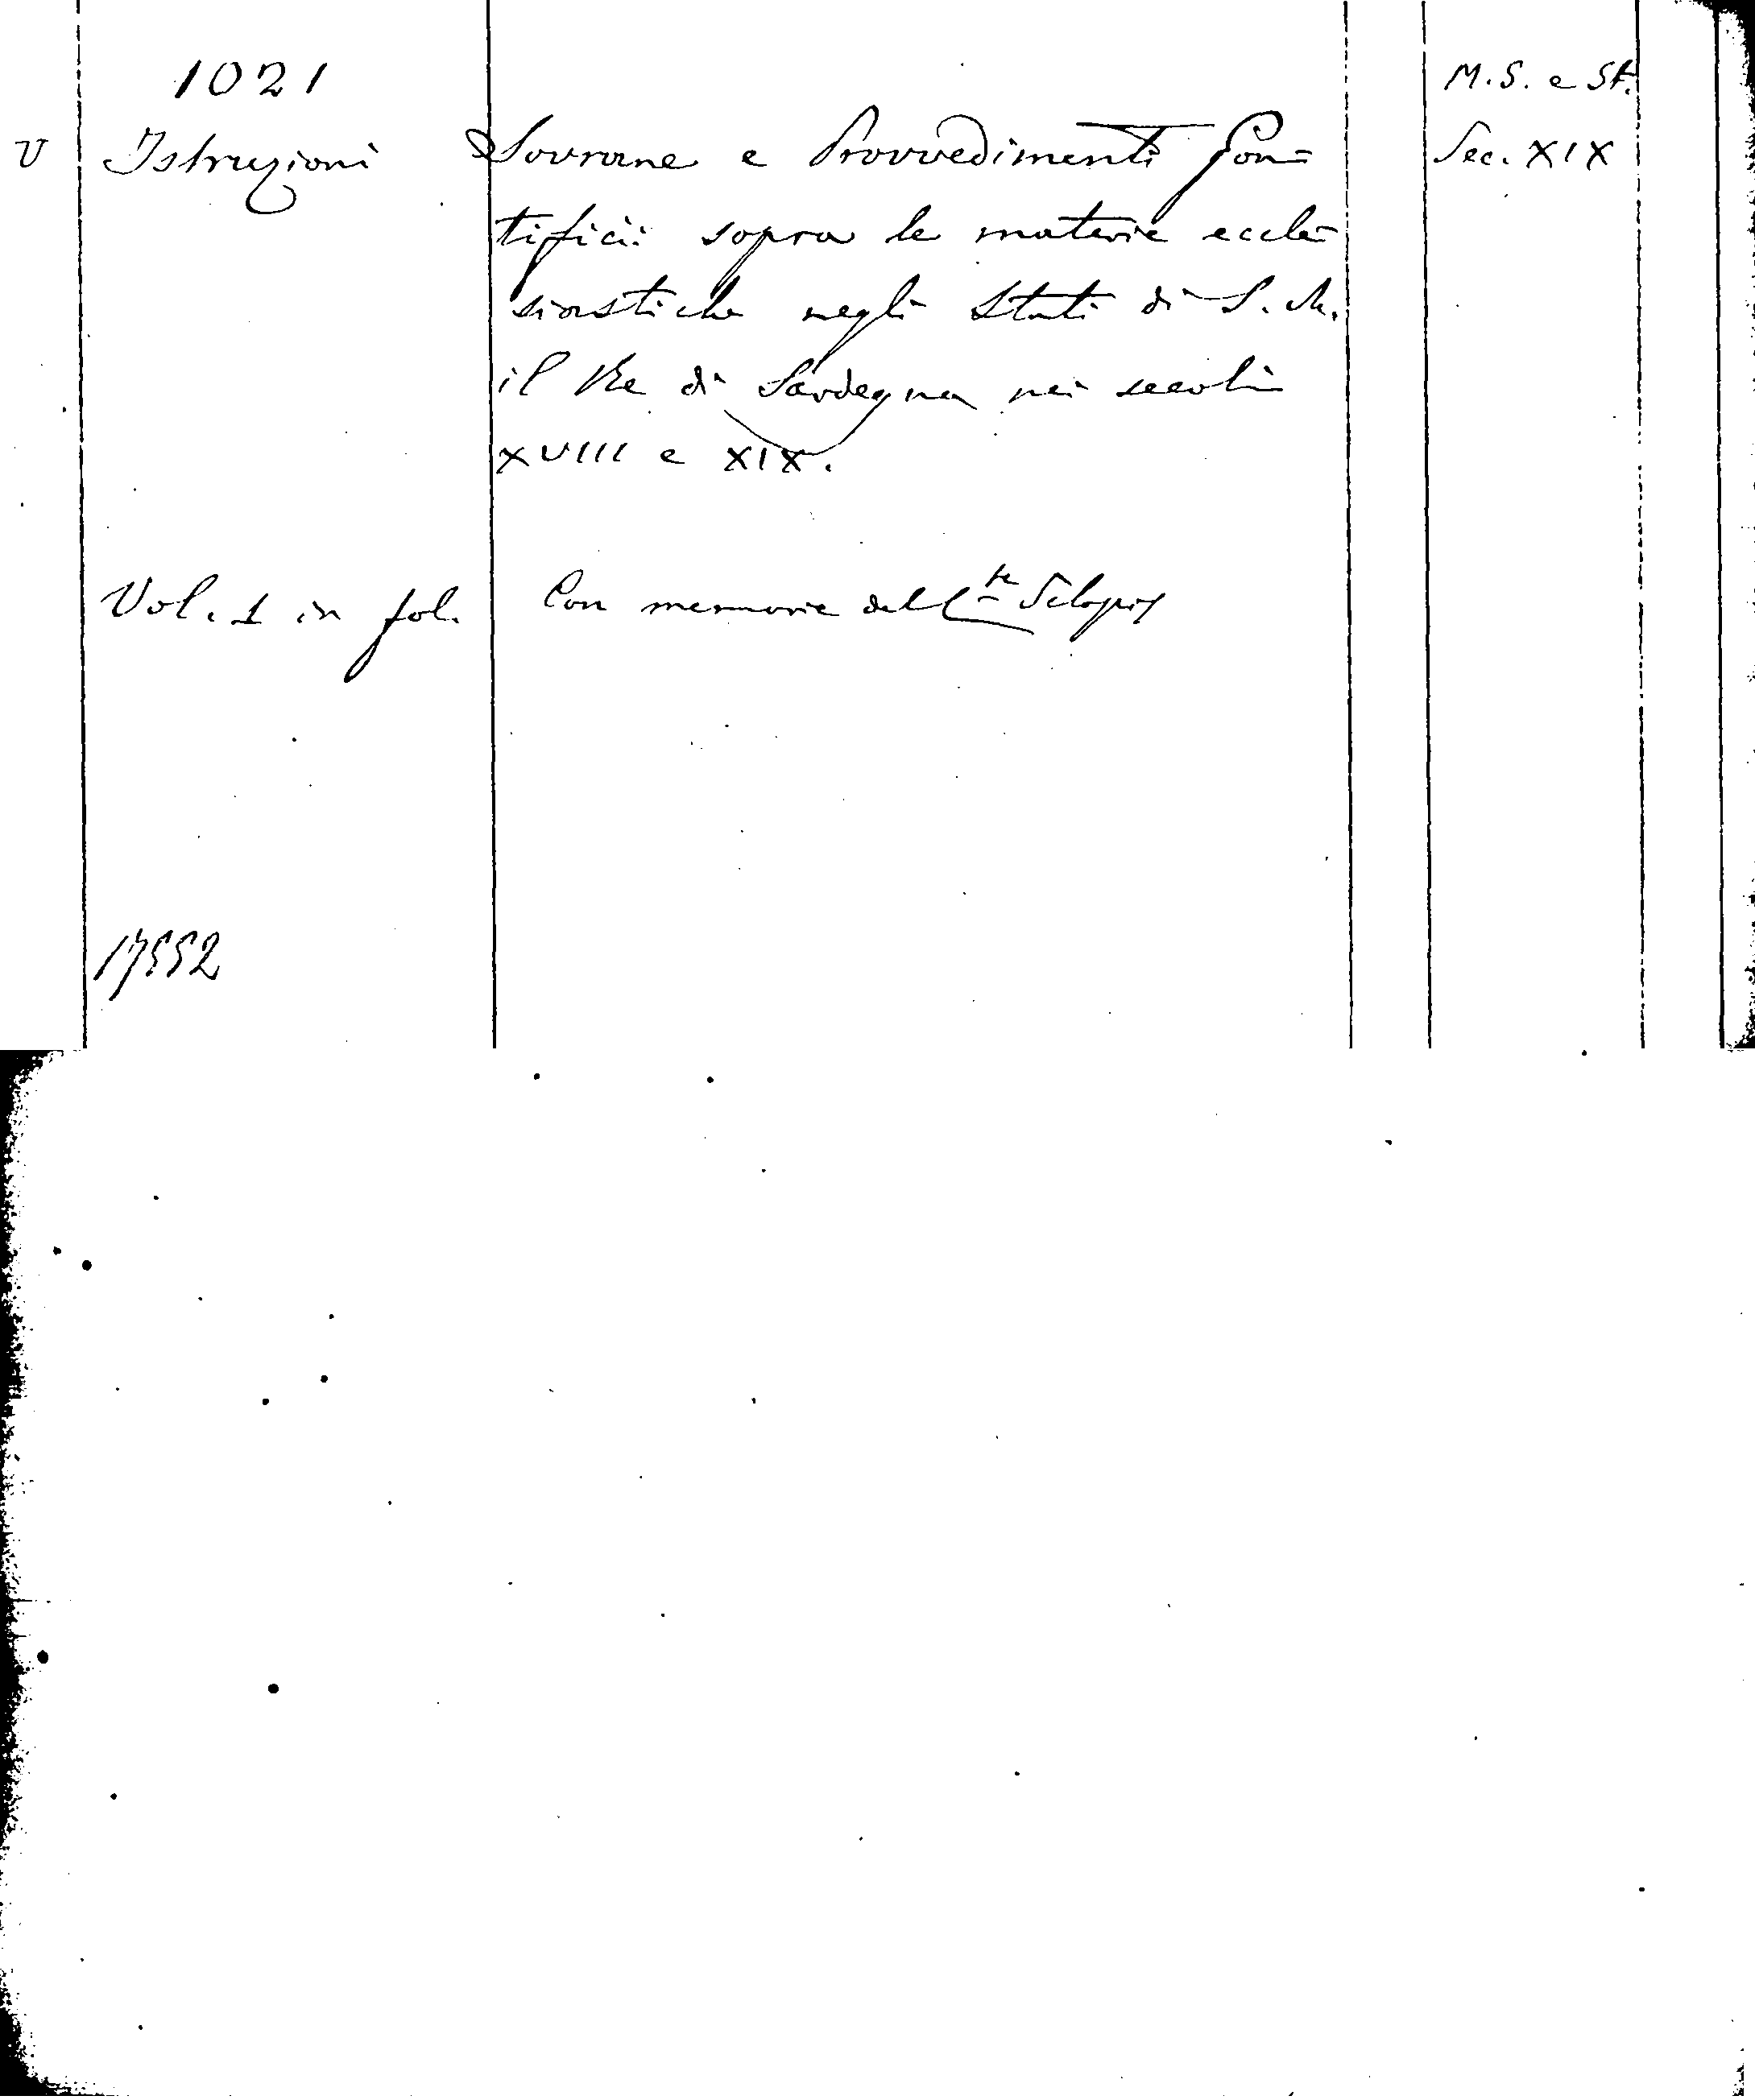 1021
M.S. e St.
V Istruzioni Sovrane e Provvedimenti Pon=
Sec. XIX
tificii sopra le materie eccle=
siastiche negli Stati di S. M.
il Re di Sardegna nei secoli
XVIII e XIX.
Vol. 1 in fol. Con memorie del Cte Sclopis
17552